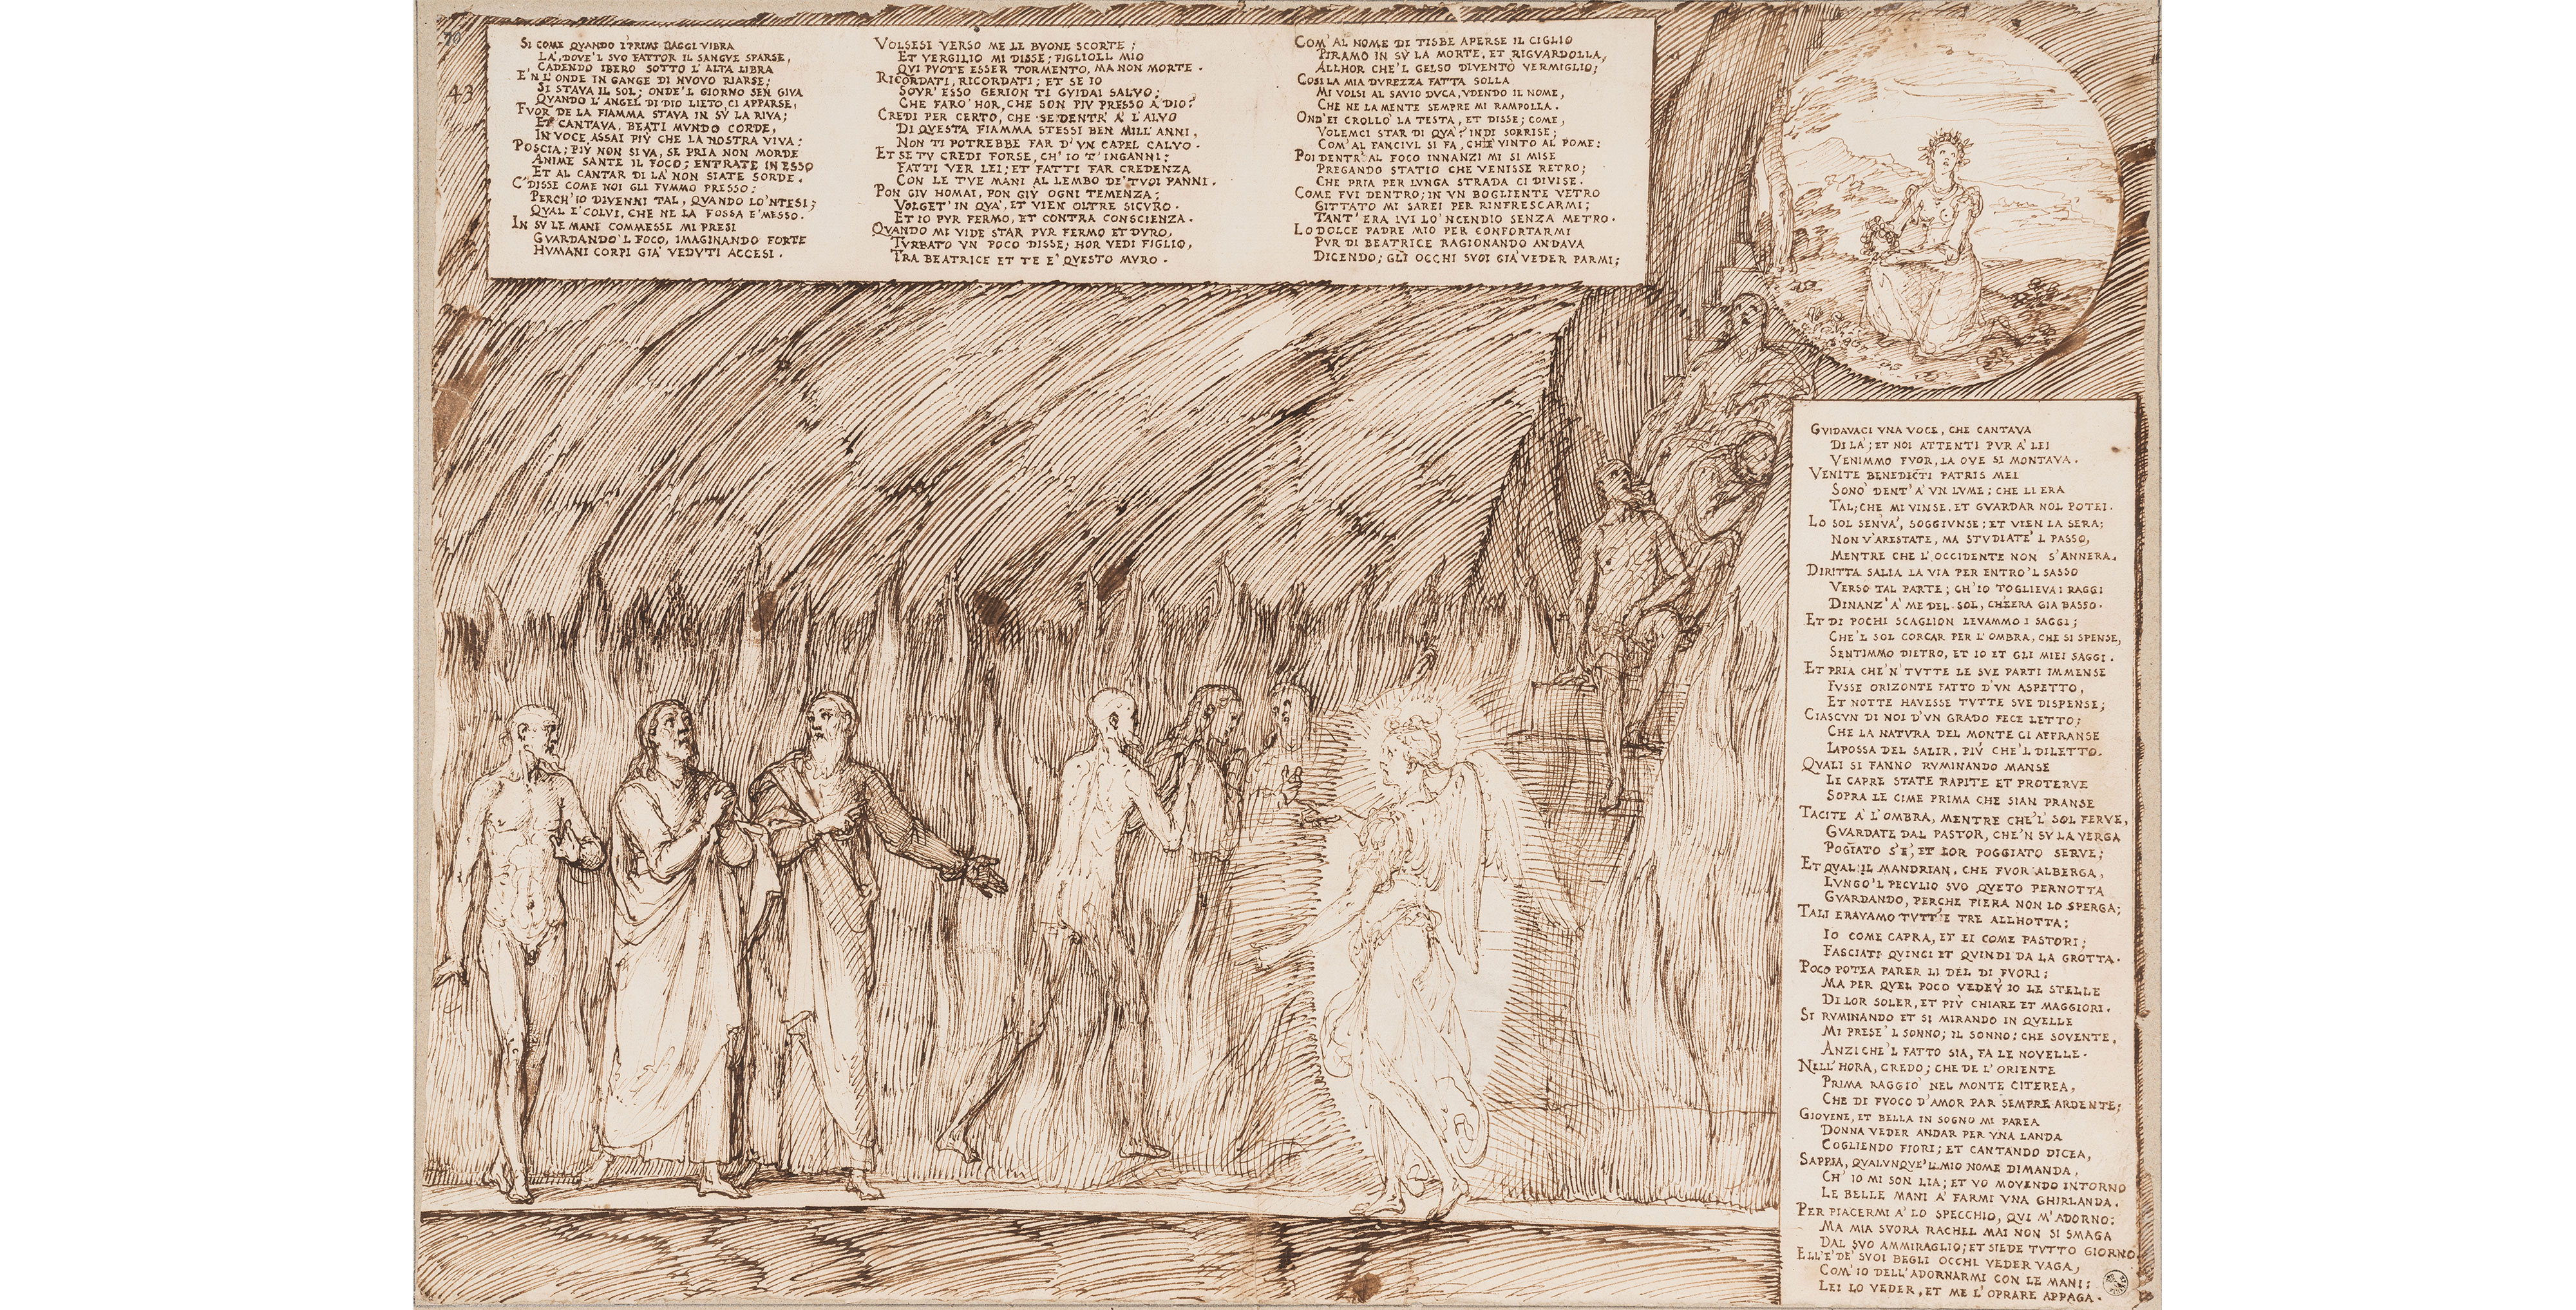 70
43
SI COME QVANDO I PRIMI RAGGI VIBRA
LA', DOVE'L SVO FATTOR IL SANGVE SPARSE,
CADENDO IBERO SOTTO L'ALTA LIBRA
E'N L'ONDE IN GANGE DI NVOVO RIARSE;
SI STAVA IL SOL; ONDE'L GIORNO SEN GIVA
QVANDO L'ANGEL DI DIO LIETO CI APPARSE,
FVOR DE LA FIAMMA STAVA IN SV LA RIVA;
ET CANTAVA, BEATI MVNDO CORDE,
IN VOCE ASSAI PIV CHE LA NOSTRA VIVA:
POSCIA; PIV NON SI VA, SE PRIA NON MORDE
ANIME SANTE IL FOCO; ENTRATE IN ESSO
ET AL CANTAR DI LA' NON SIATE SORDE.
C'DISSE COME NOI GLI FVMMO PRESSO:
PERCH'IO DIVENNI TAL, QVANDO LO'NTESI;
QVAL E' COLVI, CHE NE LA FOSSA E' MESSO.
IN SV LE MANI COMMESSE MI PRESI
GVARDANDO'L FOCO, IMAGINANDO FORTE
HVMANI CORPI GIA' VEDVTI ACCESI.
VOLSESI VERSO ME LE BVONE SCORTE;
ET VERGILIO MI DISSE; FIGLIOLL MIO
QVI PVOTE ESSER TORMENTO, MA NON MORTE.
RICORDATI, RICORDATI; ET SE IO
SOVR'ESSO GERION TI GVIDAI SALVO;
CHE FARO' HOR, CHE SON PIV PRESSO A' DIO?
CREDI PER CERTO, CHE SE DENTR' A' L'ALVO
DI QVESTA FIAMMA STESSI BEN MILL'ANNI,
NON TI POTREBBE FAR D'VN CAPEL CALVO.
ET SE TV CREDI FORSE, CH'IO T'INGANNI;
FATTI VER LEI; ET FATTI FAR CREDENZA
CON LE TVE MANI AL LEMBO DE' TVOI PANNI.
PON GIV HOMAI, PON GIV OGNI TEMENZA;
VOLGET'IN QVA', ET VIEN OLTRE SICVRO.
ET IO PVR FERMO, ET CONTRA CONSCIENZA.
QVANDO MI VIDE STAR PVR FERMO ET DVRO,
TVRBATO VN POCO DISSE; HOR VEDI FIGLIO,
TRA BEATRICE ET TE E' QVESTO MVRO.
COM'AL NOME DI TISBE APERSE IL CIGLIO
PIRAMO IN SV LA MORTE, ET RIGVARDOLLA,
ALLHOR CHE'L GELSO DIVENTO VERMIGLIO;
COSI LA MIA DVREZZA FATTA SOLLA
MI VOLSI AL SAVIO DVCA, VDENDO IL NOME,
CHE NE LA MENTE SEMPRE MI RAMPOLLA.
OND'EI CROLLO' LA TESTA, ET DISSE; COME,
VOLEMCI STAR DI QVA? INDI SORRISE;
COM'AL FANCIVL SI FA, CH'E' VINTO AL POME:
POI DENTR'AL FOCO INNANZI MI SI MISE
PREGANDO STATIO CHE VENISSE RETRO;
CHE PRIA PER LVNGA STRADA CI DIVISE.
COME FVI DENTRO; IN VN BOGLIENTE VETRO
GITTATO MI SAREI PER RINFRESCARMI;
TANT'ERA IVI LO'NCENDIO SENZA METRO.
LO DOLCE PADRE MIO PER CONFORTARMI
PVR DI BEATRICE RAGIONANDO ANDAVA
DICENDO; GLI OCCHI SVOI GIA' VEDER PARMI;
GVIDAVACI VNA VOCE, CHE CANTAVA
DI LA'; ET NOI ATTENTI PVR A' LEI
VENIMMO FVOR, LA OVE SI MONTAVA.
VENITE BENEDICTI PATRIS MEI
SONO' DENT'A' VN LVME; CHE LI ERA
TAL; CHE MI VINSE, ET GVARDAR NOL POTEI.
LO SOL SEN VA', SOGGIVNSE; ET VIEN LA SERA;
NON V'ARESTATE, MA STVDIATE'L PASSO,
MENTRE CHE L'OCCIDENTE NON S'ANNERA.
DIRITTA SALIA LA VIA PER ENTRO'L SASSO
VERSO TAL PARTE; CH'IO TOGLIEVA I RAGGI
DINANZ'A' ME DEL SOL, CH'EERA GIA BASSO.
ET DI POCHI SCAGLION LEVAMMO I SAGGI;
CHE'L SOL CORCAR PER L'OMBRA, CHE SI SPENSE,
SENTIMMO DIETRO, ET IO ET GLI MIEI SAGGI.
ET PRIA CHE'N TVTTE LE SVE PARTI IMMENSE
FVSSE ORIZONTE FATTO D'VN ASPETTO,
ET NOTTE HAVESSE TVTTE SVE DISPENSE;
CIASCVN DI NOI D'VN GRADO FECE LETTO;
CHE LA NATVRA DEL MONTE CI AFFRANSE
LA POSSA DEL SALIR, PIV CHE'L DILETTO.
QVALI SI FANNO RVMINANDO MANSE
LE CAPRE STATE RAPITE ET PROTERVE
SOPRA LE CIME PRIMA CHE SIAN PRANSE
TACITE A' L'OMBRA, MENTRE CHE'L SOL FERVE,
GVARDATE DAL PASTOR, CHE'N SV LA VERGA
POGIATO S'E', ET LOR POGGIATO SERVE;
ET QVAL IL MANDRIAN, CHE FVOR ALBERGA,
LVNGO'L PECVLIO SVO QVETO PERNOTTA
GVARDANDO, PERCHE FIERA NON LO SPERGA;
TALI ERAVAMO TVTT'E TRE ALLHOTTA;
IO COME CAPRA, ET EI COME PASTORI;
FASCIATI QVINCI ET QVINDI DA LA GROTTA.
POCO POTEA PARER LI DEL DI FVORI;
MA PER QVEL POCO VEDEV'IO LE STELLE
DI LOR SOLER, ET PIV CHIARE ET MAGGIORI.
SI RVMINANDO ET SI MIRANDO IN QVELLE
MI PRESE'L SONNO; IL SONNO; CHE SOVENTE,
ANZI CHE'L FATTO SIA, FA LE NOVELLE.
NELL'HORA, CREDO; CHE DE L'ORIENTE
PRIMA RAGGIO' NEL MONTE CITEREA,
CHE DI FVOCO D'AMOR PAR SEMPRE ARDENTE;
GIOVENE, ET BELLA IN SOGNO MI PAREA
DONNA VEDER ANDAR PER VNA LANDA
COGLIENDO FIORI; ET CANTANDO DICEA,
SAPPIA, QVALVNQVE'L MIO NOME DIMANDA,
CH'IO MI SON LIA; ET VO MOVENDO INTORNO
LE BELLE MANI A' FARMI VNA GHIRLANDA.
PER PIACERMI A' LO SPECCHIO, QVI M'ADORNO:
MA MIA SVORA RACHEL MAI NON SI SMAGA
DAL SVO AMMIRAGLIO; ET SIEDE TVTTO GIORNO.
ELL'E' DE' SVOI BEGLI OCCHI VEDER VAGA,
COM'IO DELL'ADORNARMI CON LE MANI;
LEI LO VEDER, ET ME L'OPRARE APPAGA.